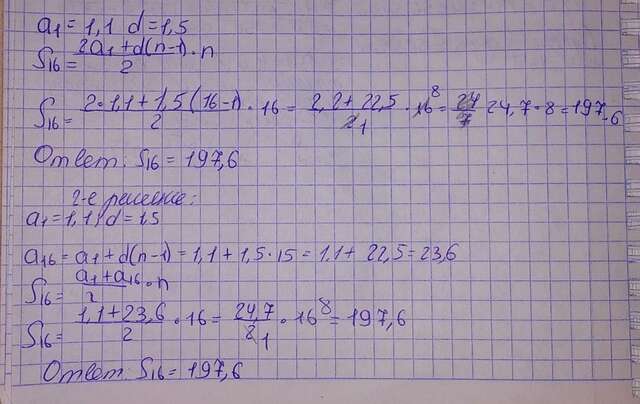 a₁ = 1,1 d = 1,5
S₁₆ = (2a₁ + d(n-1))/2 · n
S₁₆ = (2·1,1 + 1,5(16-1))/2 · 16 = (2,2 + 22,5)/2 1 · 16 8 = 24,7 · 8 = 197,6
Ответ: S₁₆ = 197,6
2-е решение:
a₁ = 1,1 d = 1,5
a₁₆ = a₁ + d(n-1) = 1,1 + 1,5 · 15 = 1,1 + 22,5 = 23,6
S₁₆ = (a₁ + a₁₆)/2 · n
S₁₆ = (1,1 + 23,6)/2 · 16 = 24,7/2 1 · 16 8 = 197,6
Ответ: S₁₆ = 197,6